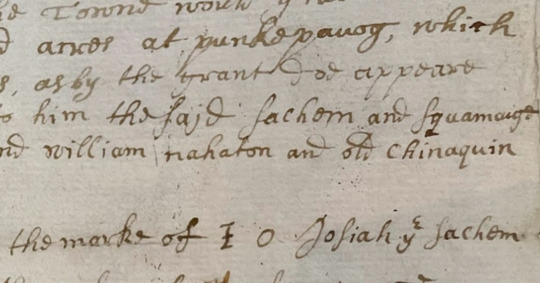 he Towne
d acres at punkepauog, which
s, as by the grant doe appeare
to him the said sachem and squamauge
nd william nahaton and old Chinaquin
the marke of I O Josiah yᵉ sachem